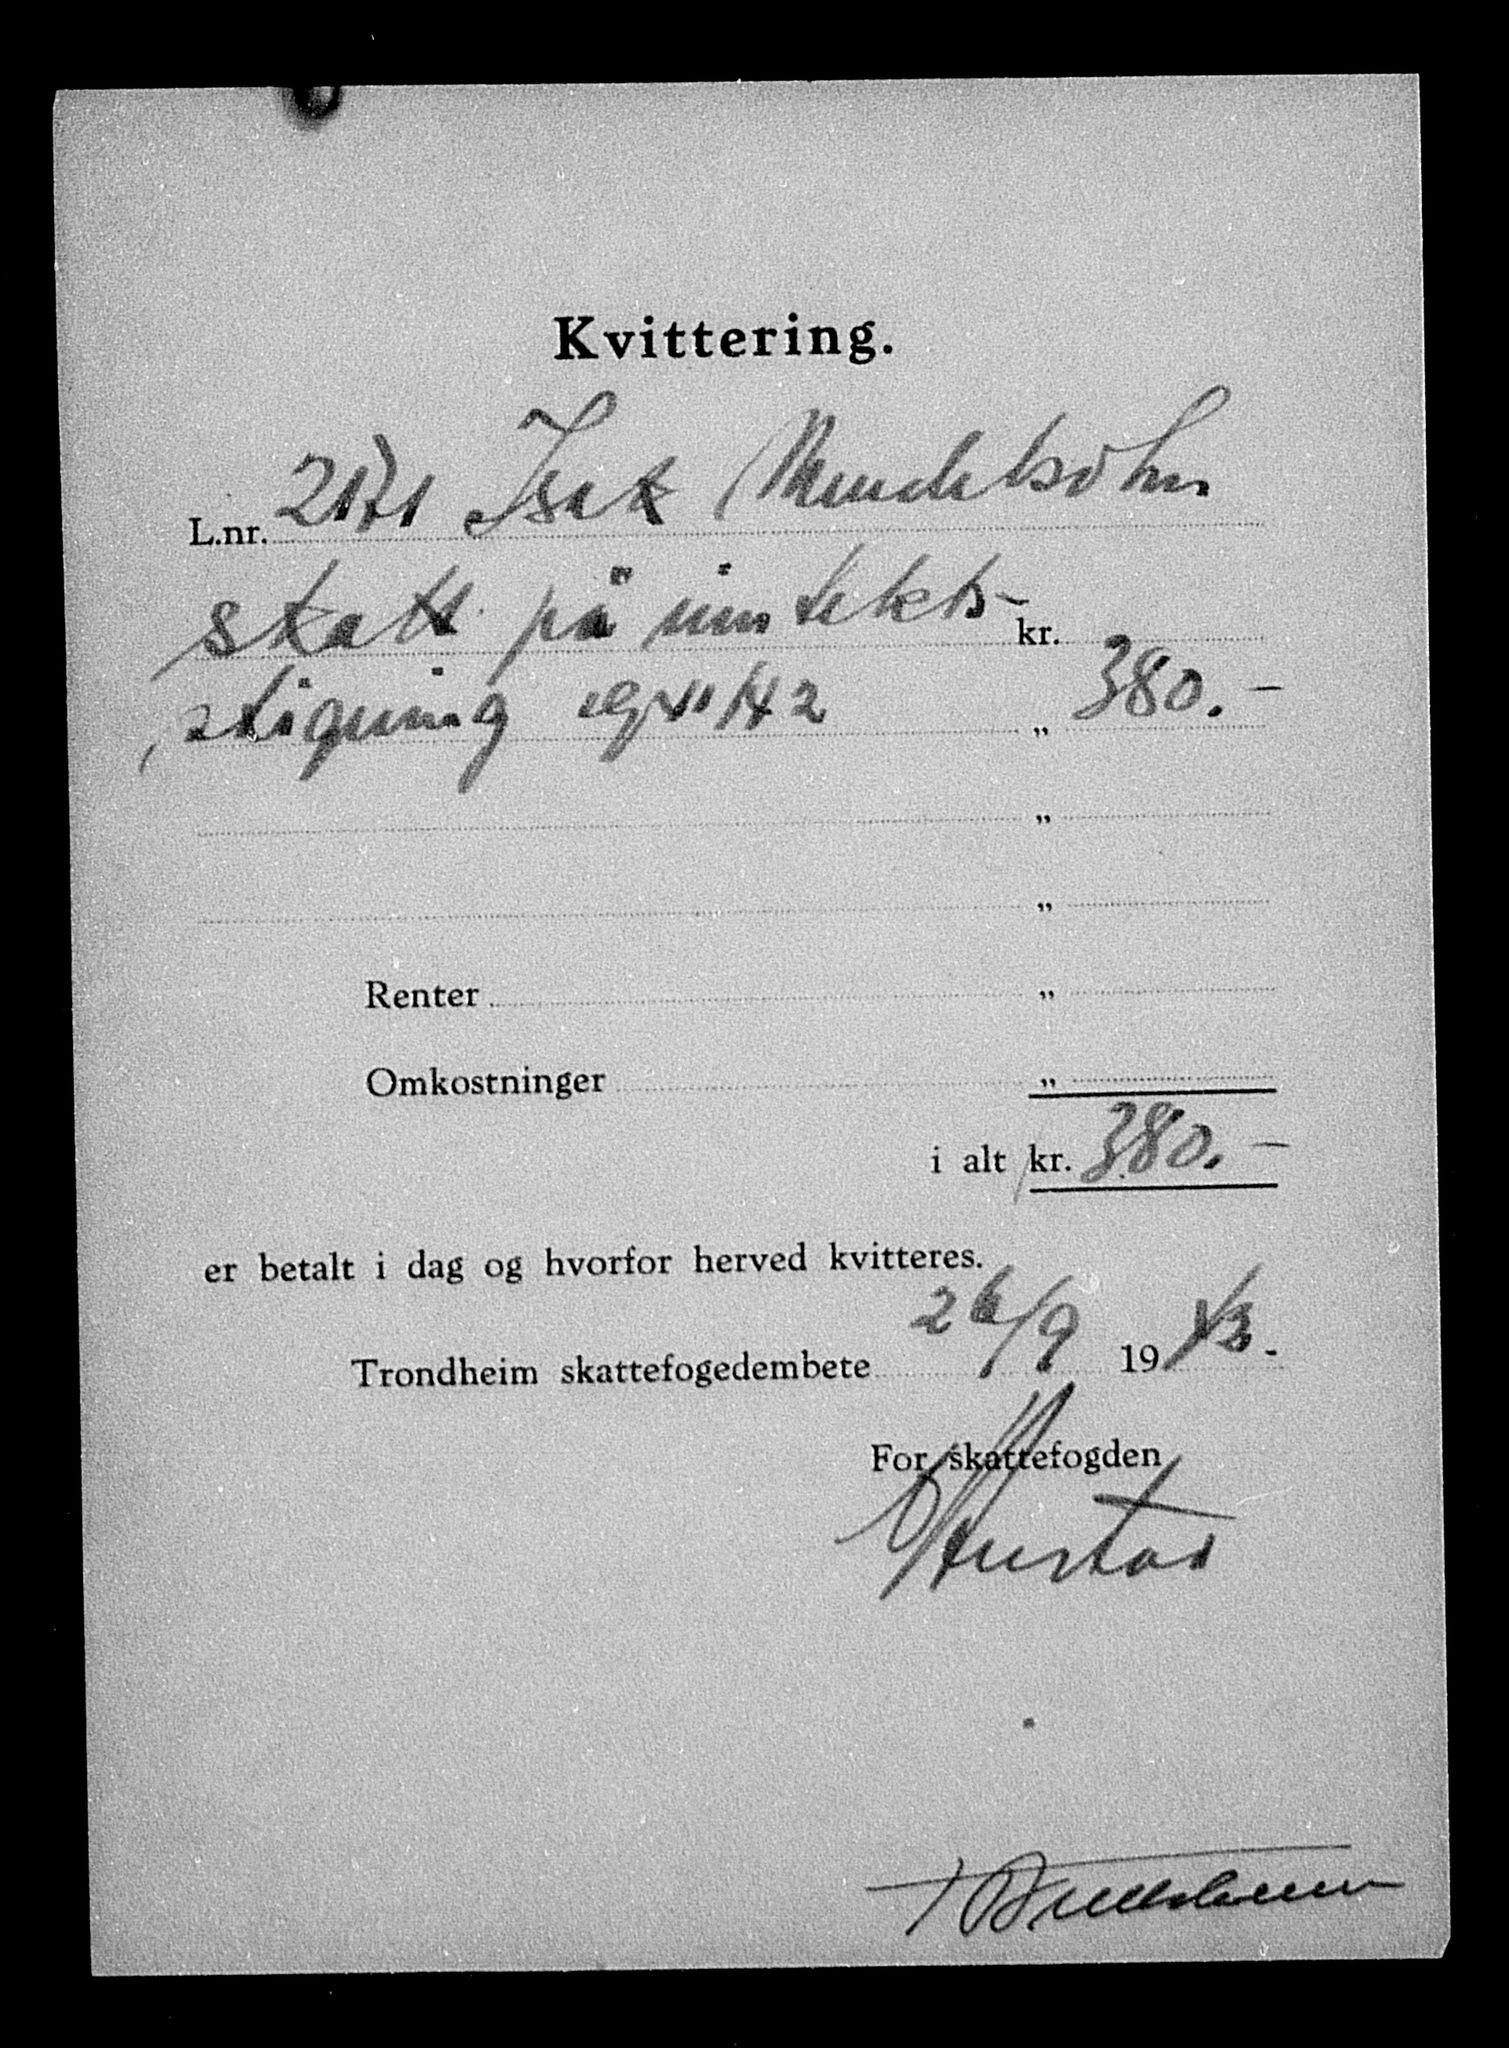 Kvittering.
L.nr. 2171 Isak Mendelsohn
skatt på inntekts- kr.
stigning 1941/42 „ 380.-
„
„
Renter „
Omkostninger „
i alt kr. 380.-
er betalt i dag og hvorfor herved kvitteres.
Trondheim skattefogedembete 26/9 1943.
For skattefogden
Hustad